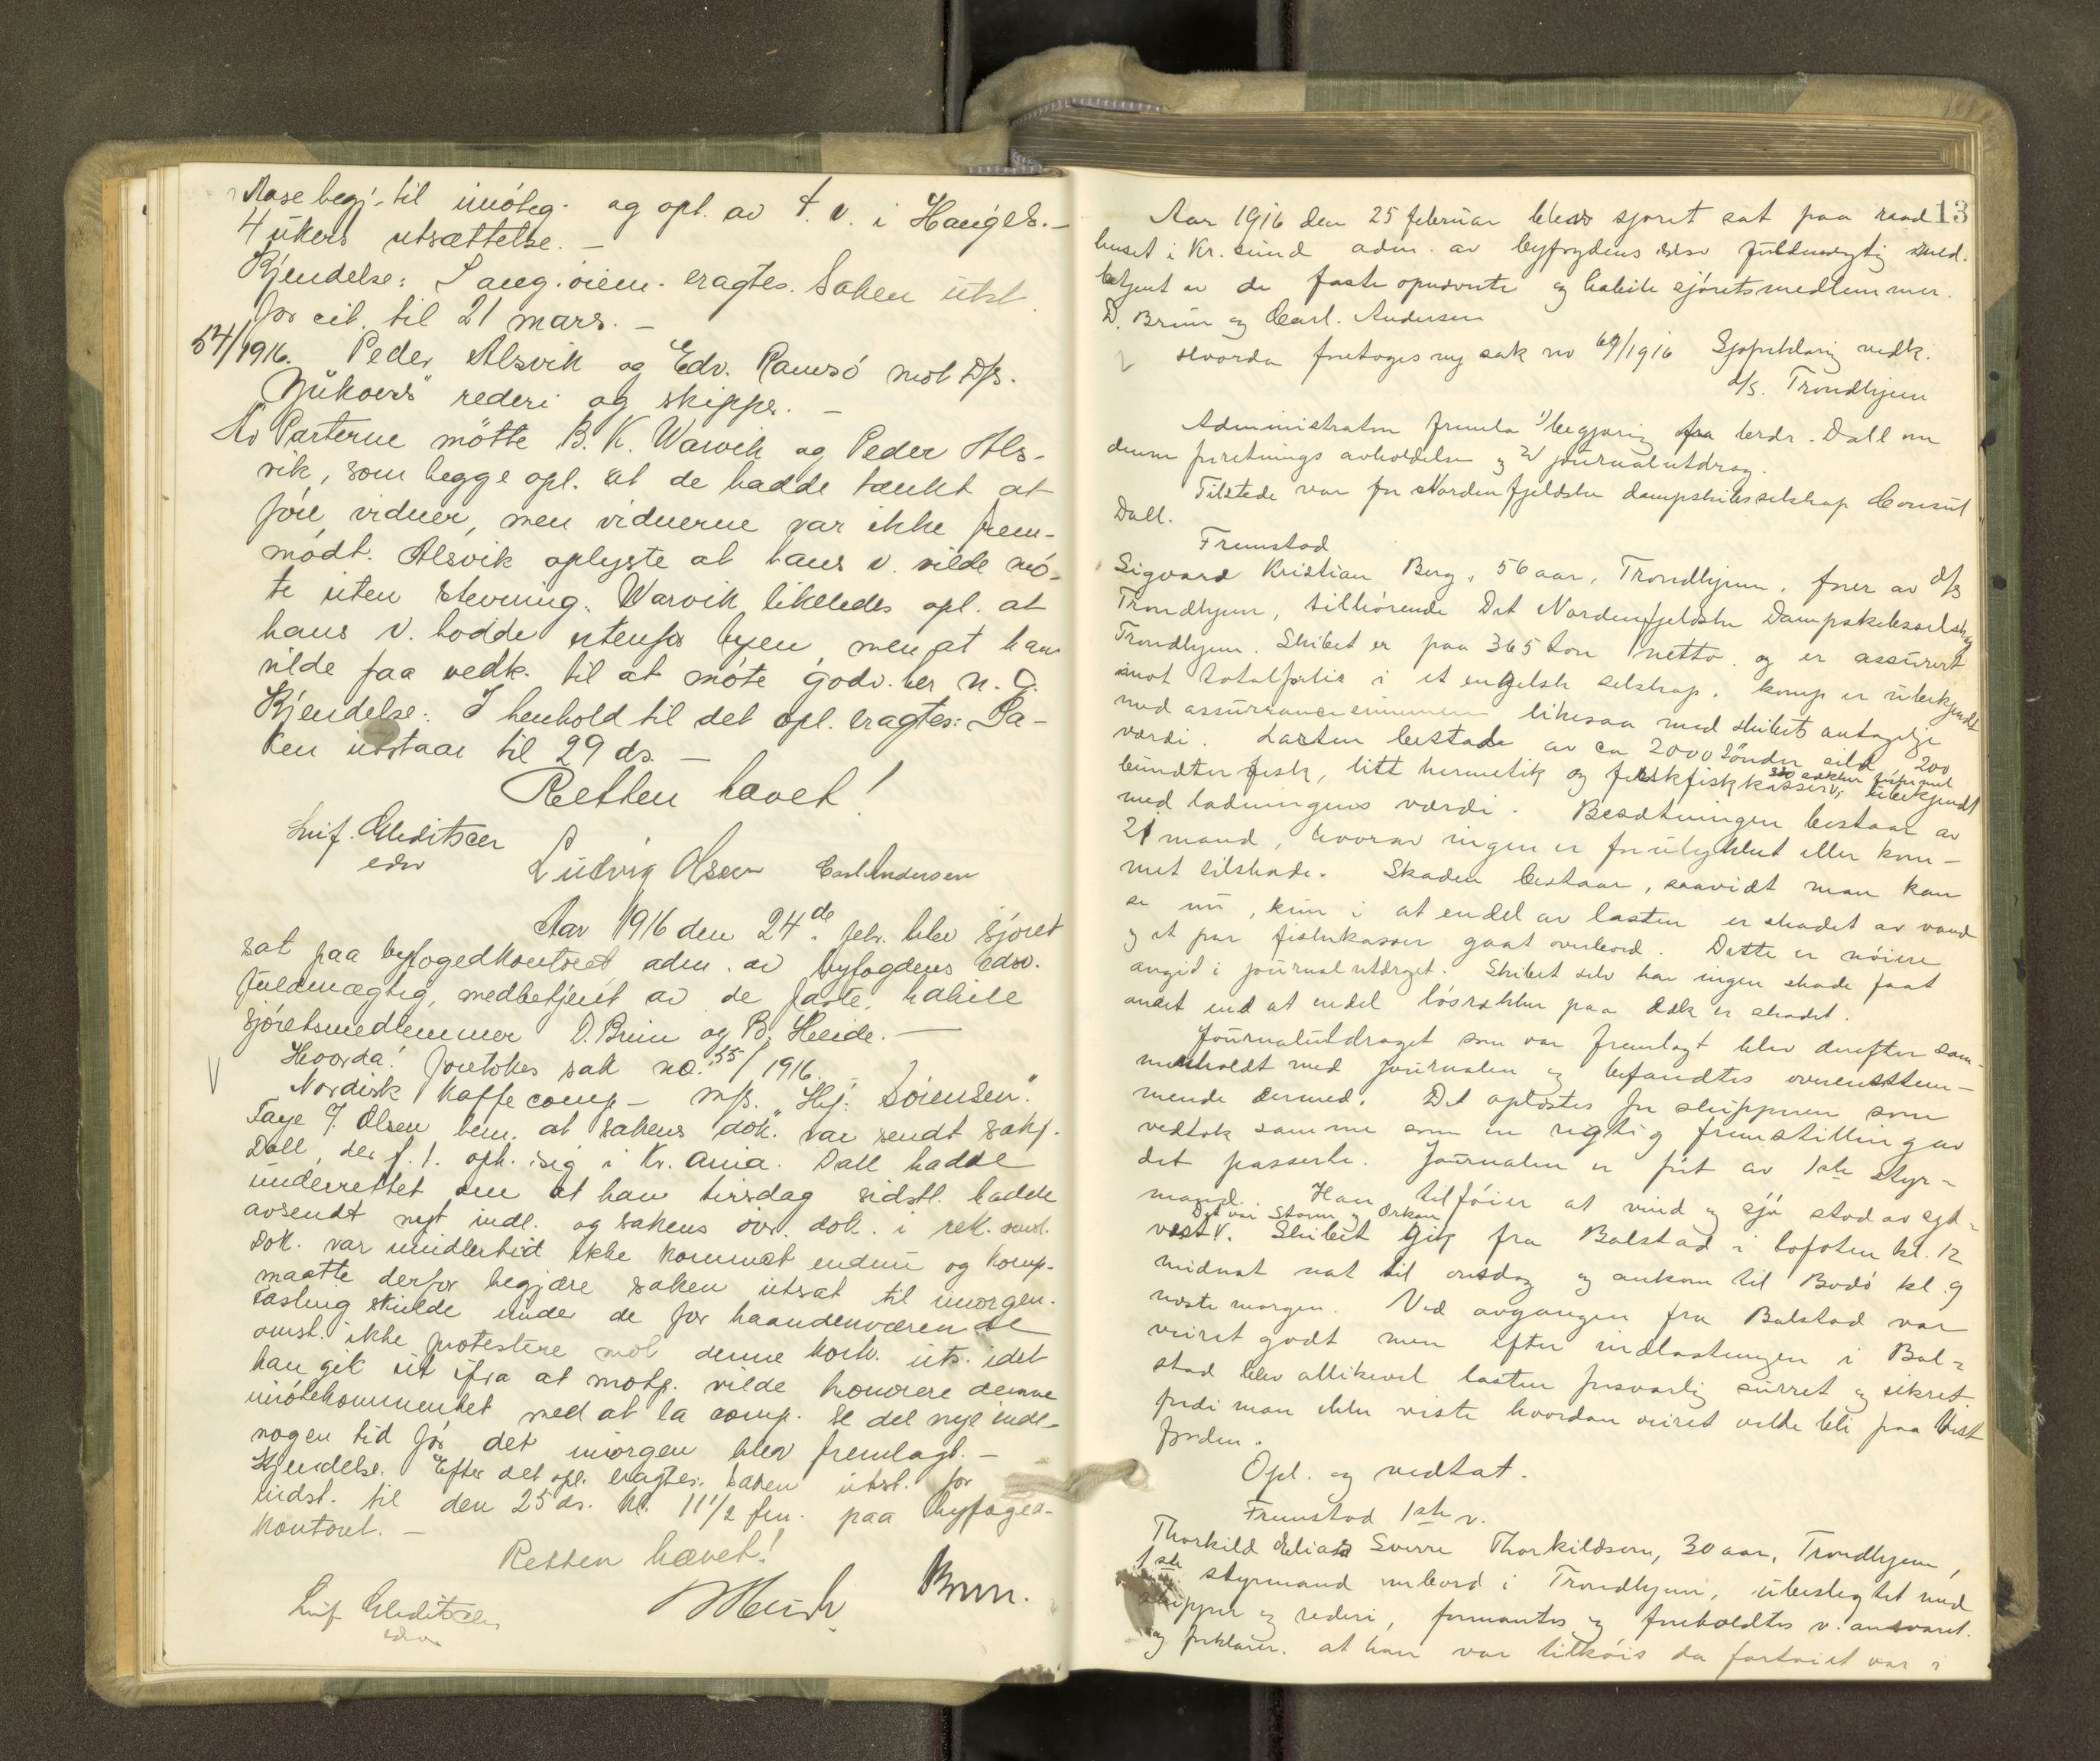 Aase begj. til imøteg. og opl. av t. v. i Hauges.-
4 ukers utsættelse. -
Kjendelse: I aug. øiem. eragtes. Saken utst.
for cit. til 21 mars. -
54/1916. Peder Alsvik og Edv. Ramsö mot D/S.
rederi og skipper. -
Av Parterne mötte B. K. Warvik og Peder Als-
vik, som begge opl. at de hadde tænkt at
føre vidner, men vidnerne var ikke frem-
mödt. Alsvik oplyste at hans v. vilde mö-
te uten stevning. Warvik likeledes opl. at
hans v. bodde utenfor byen, men at han
vilde faa vedk. til at möte godv. her n. g.
Kjendelse: I henhold til det opl. eragtes: Sa-
ken utstaar til 29 ds. -
Retten hævet!
Leif. Gleditsch
edsv
Ludvig Olsen Carl Andersen
Aar 1916 den 24de febr. blev sjöret
sat paa byfogedkontoret adm. av byfogdens edsv.
fuldmægtig, medbetjent av de faste, habile
sjöretsmedlemmer D. Brun og B. Heide. -
V Hvorda! foretokes sak no. 55/1916. -
Nordisk Kaffecomp - m/s. "Hj. Sörensen".
Faye J. Olsen bem. at sakens dok. var sendt sakf.
Dall, der f. t. oph. sig i Kr.ania. Dall hadde
underrettet om at han tirsdag sidstl. hadde
avsendt nyt indl. og sakens övr. dok. i rek. omsl.
Dok. var imidlertid ikke kommet endnu og komp.
maatte derfor begjære saken utsat til imorgen.
Fasting skulde under de for haandenværende
omst. ikke protestere mot denne kortv. uts. idet
han gik ut ifra at motp. vilde honorere denne
imötekommenhet med at la comp. se det nye indl.
nogen tid för det imorgen blev fremlagt. -
Kjendelse. Efter det opl. eragtes: Saken utst. for
indst. til den 25 ds. kl. 11 1/2 fm. paa byfoged-
kontoret. -
Retten hævet!
Leif Gleditsch
edsv
B Heide Brun.
13
Aar 1916 den 25 februar blev sjöret sat paa raad
huset i Kr.sund adm. av byfogdens edsv fuldmegtig med.
betjent av de faste opnævnte og habile sjöretsmedlemmer.
D. Brun og Carl. Andersen
V Hvorda foretoges ny sak no 69/1916 Sjöforklaring vedk.
d/s. Trondhjem
Administrator fremla 1) begjæring fra brdr. Dall om
denne forretnings avholdelse og 2) journalutdrag.
Tilstede var for Nordenfjeldske dampskibsselskap Consul
Dall.
Fremstod
Sigvard Kristian Berg, 56 aar, Trondhjem. förer av d/s
Trondhjem, tilhörende Det Nordenfjeldske Dampskibsselskap
Trondhjem. Skibet er paa 365 ton netto. og er assurert
imot totalforlis i et engelsk selskap. komp er ubekjendt
med assurancesummen likesaa med skibets antagelige
værdi. Lasten bestade av ca 2000 tönder sild, 200
bundter fisk, litt hermetik og ferskfiskkasser,
ubekjendt
med ladningens værdi. Besætningen bestaar av
21 mand, hvorav ingen er forulykket eller kom-
met tilskade. Skaden bestaar, saavidt man kan
se nu, kun i at endel av lasten er skadet av vand
og et par fiskekasser gaat overbord. Dette er nöiere
angid i journalutdraget. Skibet selv har ingen skade faat
andet end at endel lösrekker paa dæk er skadet.
Journalutdraget som var fremlagt blev derefter sam-
menholdt med journalen og befandtes overensstem-
mende dermed. Det oplæstes for skipperen som
vedtok samme som en rigtig fremstilling av
det passerte. Journalen er fört av 1ste styr-
mand. Han tilföier at vind og sjö stod av syd-
Det var Storm og Orkan
vest V. Skibet gik fra Balstad i lofoten kl. 12
midnat nat til onsdag og ankom til Bodö kl. 9
næste morgen. Ved avgangen fra Balstad var
veiret godt men efter indlastningen i Bal-
stad blev allikevel lasten forsvarlig surret og sikret,
fordi man ikke viste hvordan veiret vilde bli paa Vest
fjorden.
Opl. og vedtat.
Fremstod 1ste v.
Thorkild Sverre Thorkildsen, 30 aar, Trondhjem,
1ste styrmand ombord i Trondhjem, ubeslegtet med
skipper og rederi, formantes og foreholdtes v. ansvaret.
og forklarer. at han var tilköis da fartöiet var i